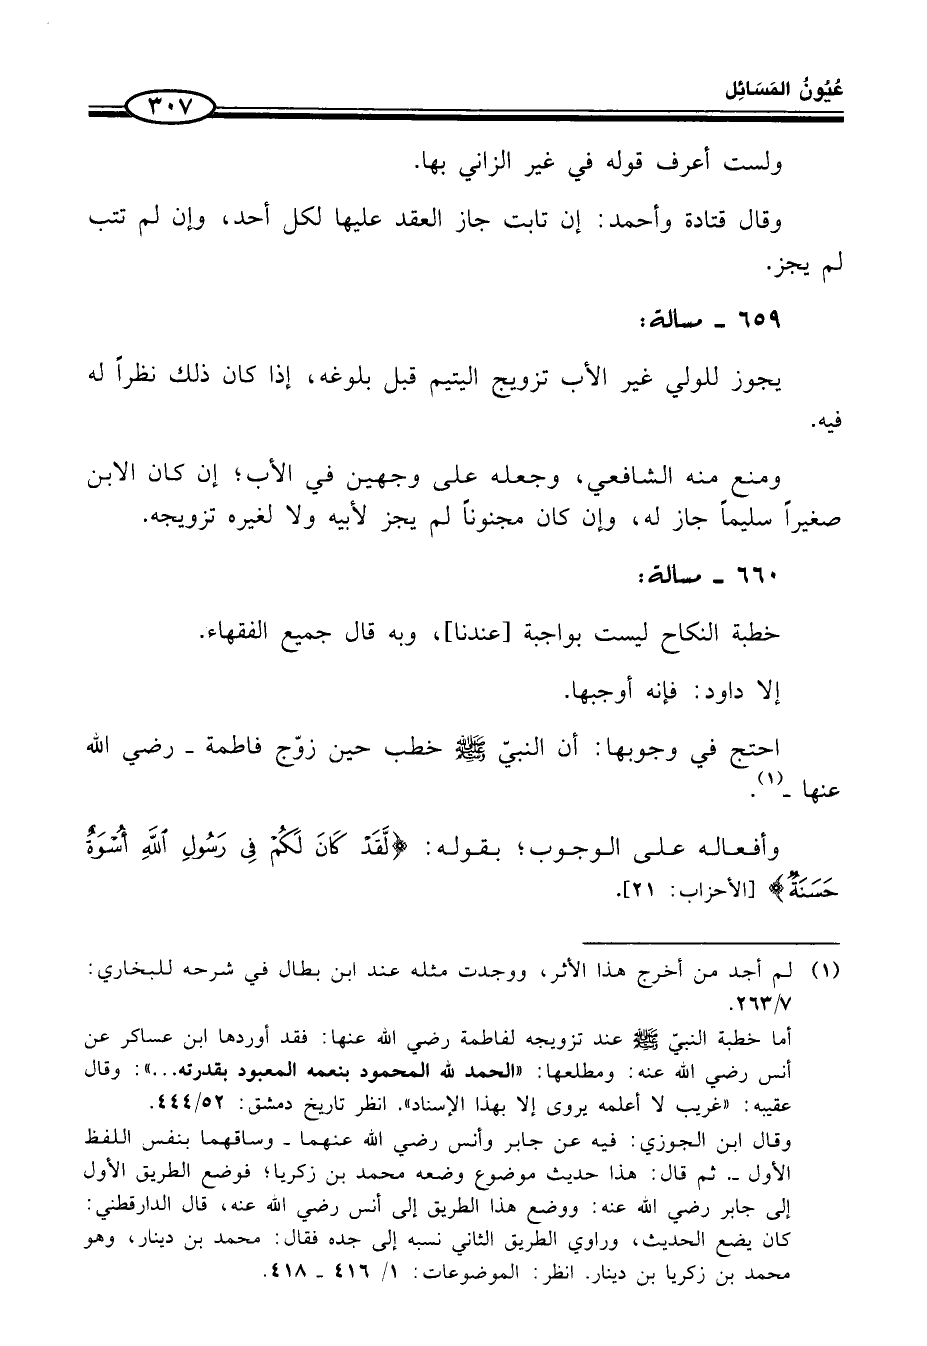 عُيُونُ المَسَائِل
٣٠٧
ولست أعرف قوله في غير الزاني بها.
وقال قتادة وأحمد: إن تابت جاز العقد عليها لكل أحد، وإن لم تتب
لم يجز.
٦٥٩ ـ مسالة:
يجوز للولي غير الأب تزويج اليتيم قبل بلوغه، إذا كان ذلك نظراً له
فيه.
ومنع منه الشافعي، وجعله على وجهين في الأب؛ إن كان الابن
صغيراً سليماً جاز له، وإن كان مجنوناً لم يجز لأبيه ولا لغيره تزويجه.
٦٦٠ ـ مسالة:
خطبة النكاح ليست بواجبة [عندنا]، وبه قال جميع الفقهاء.
إلا داود: فإنه أوجبها.
احتج في وجوبها: أن النبيّ ﷺ خطب حين زوّج فاطمة ـ رضي الله
عنها ـ(١).
وأفعاله على الوجوب؛ بقوله: ﴿لَّقَدْ كَانَ لَكُمْ فِي رَسُولِ ٱللَّهِ أُسْوَةٌ
حَسَنَةٌ﴾ [الأحزاب: ٢١].
(١) لم أجد من أخرج هذا الأثر، ووجدت مثله عند ابن بطال في شرحه للبخاري:
٢٦٣/٧.
أما خطبة النبيّ ﷺ عند تزويجه لفاطمة رضي الله عنها: فقد أوردها ابن عساكر عن
أنس رضي الله عنه: ومطلعها: «الحمد لله المحمود بنعمه المعبود بقدرته...»: وقال
عقيبه: «غريب لا أعلمه يروى إلا بهذا الإسناد». انظر تاريخ دمشق: ٤٤٤/٥٢.
وقال ابن الجوزي: فيه عن جابر وأنس رضي الله عنهما ـ وساقهما بنفس اللفظ
الأول ـ. ثم قال: هذا حديث موضوع وضعه محمد بن زكريا؛ فوضع الطريق الأول
إلى جابر رضي الله عنه: ووضع هذا الطريق إلى أنس رضي الله عنه، قال الدارقطني:
كان يضع الحديث، وراوي الطريق الثاني نسبه إلى جده فقال: محمد بن دينار، وهو
محمد بن زكريا بن دينار. انظر: الموضوعات: ١/ ٤١٦ ـ ٤١٨.